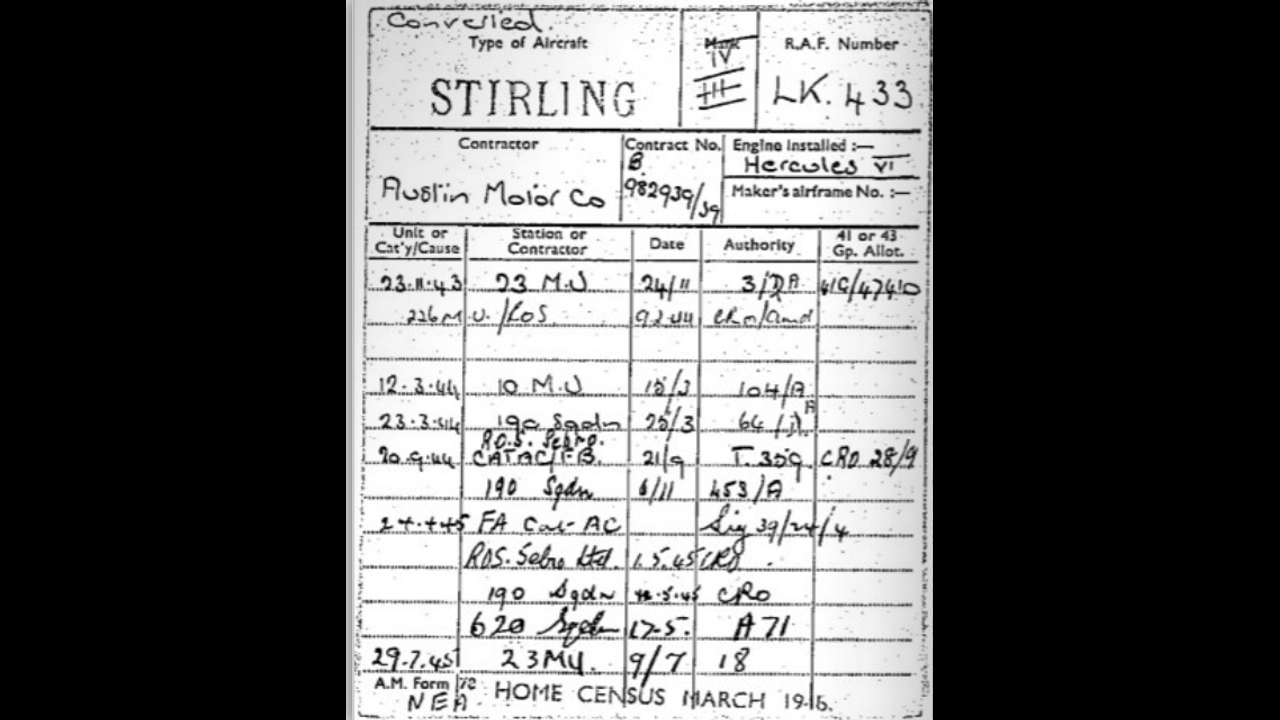 Converted.
Type of Aircraft Mark R.A.F. Number
STIRLING IV III LK. 433
Contractor Contract No. Engine Installed :—
B. Hercules VI
Austin Motor Co 982939/39 Maker's airframe No. :—
Unit or Cat'y/Cause Station or Contractor Date Authority 41 or 43 Gp. Allot.
23.11.43 23 M.U 24/11 3/DA 41G/47410
226 M U./ROS. 9.2.44
12.3.44 10 M.U 15/3 104/A
23.3.44 190 Sqdn 25/3 64
R.O.S. Sebro.
20.9.44 CAT AC/FB. 21/9 T.359 CRO 28/9
190 Sqdn 6/11 453/A
24.4.45 FA Cat-AC Sig 39/24/4
ROS. Sebro Ltd. 1.5.45 CRO.
190 Sqdn .5.45 CRO
620 Sqdn 17.5. A 71
29.7.45 23 MU. 9/7 18
A.M. Form 78 HOME CENSUS MARCH 1946.
NEA.